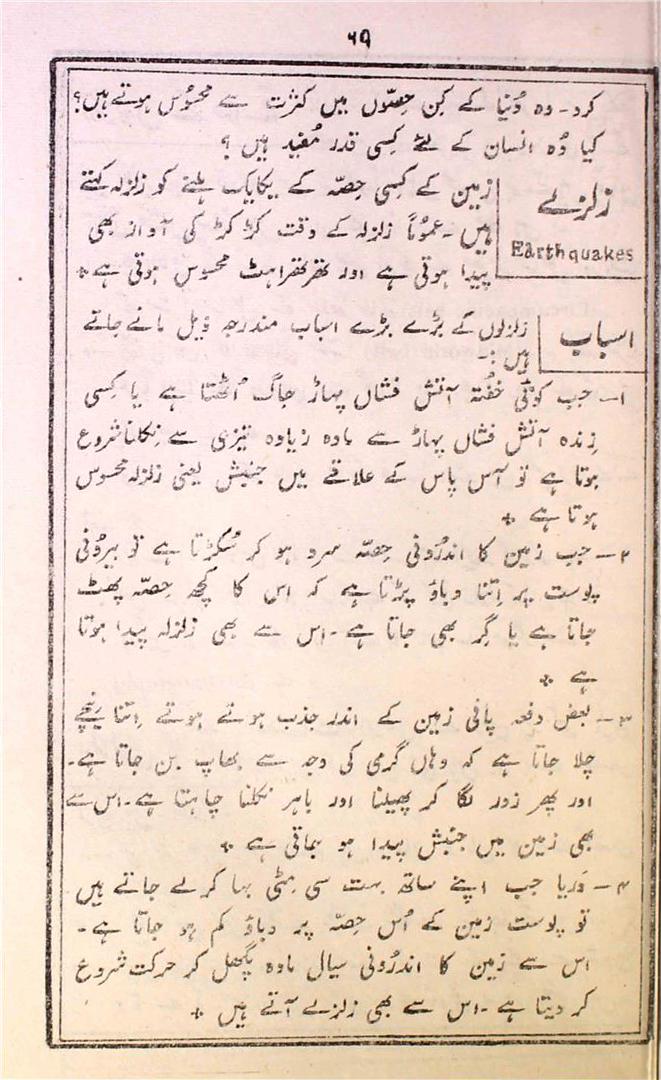 ۶۹
کرو۔ وہ دُنیا کے کِن حِصّوں میں کثرت سے محسُوس ہوتے ہیں؟
کیا وُہ انسان کے لئے کِسی قدر مُفید ہیں ؟
زلزلے
Earthquakes
زمین کے کِسی حِصّہ کے یکایک ہلنے کو زلزلہ کہتے
ہیں۔ عموُماً زلزلہ کے وقت کڑ کڑ کی آواز بھی
پیدا ہوتی ہے اور تھرتھراہٹ محسوس ہوتی ہے ٭
اسباب
زلزلوں کے بڑے بڑے اسباب مندرجہ ذیل مانے جاتے
ہیں :۔
۱۔ جب کوئی خُفتہ آتش فشاں پہاڑ جاگ اُٹھتا ہے یا کِسی
زِندہ آتش فشاں پہاڑ سے مادہ زیادہ تیزی سے نِکلنا شروع
ہوتا ہے تو آس پاس کے علاقے میں جنبش یعنی زلزلہ محسوس
ہوتا ہے ٭
۲۔ جب زمین کا اندرُونی حِصّہ سرد ہو کر سُکڑتا ہے تو بیرُونی
پوست پر اِتنا دباؤ پڑتا ہے کہ اس کا کچھ حِصّہ پھٹ
جاتا ہے یا گِر بھی جاتا ہے۔ اس سے بھی زلزلہ پیدا ہوتا
ہے ٭
۳۔ بعض دفعہ پانی زمین کے اندر جذب ہوتے ہوتے اِتنا نیچے
چلا جاتا ہے کہ وہاں گرمی کی وجہ سے بھاپ بن جاتا ہے۔
اور پھر زور لگا کر پھیلنا اور باہر نکلنا چاہتا ہے۔ اس سے
بھی زمین میں جنبش پیدا ہو جاتی ہے ٭
۴۔ دَریا جب اپنے ساتھ بہت سی مِٹی بہا کر لے جاتے ہیں
تو پوست زمین کے اُس حِصّہ پر دباؤ کم ہو جاتا ہے۔
اس سے زمین کا اندرُونی سیال مادہ پگھل کر حرکت شروع
کر دیتا ہے۔ اس سے بھی زلزلے آتے ہیں ٭